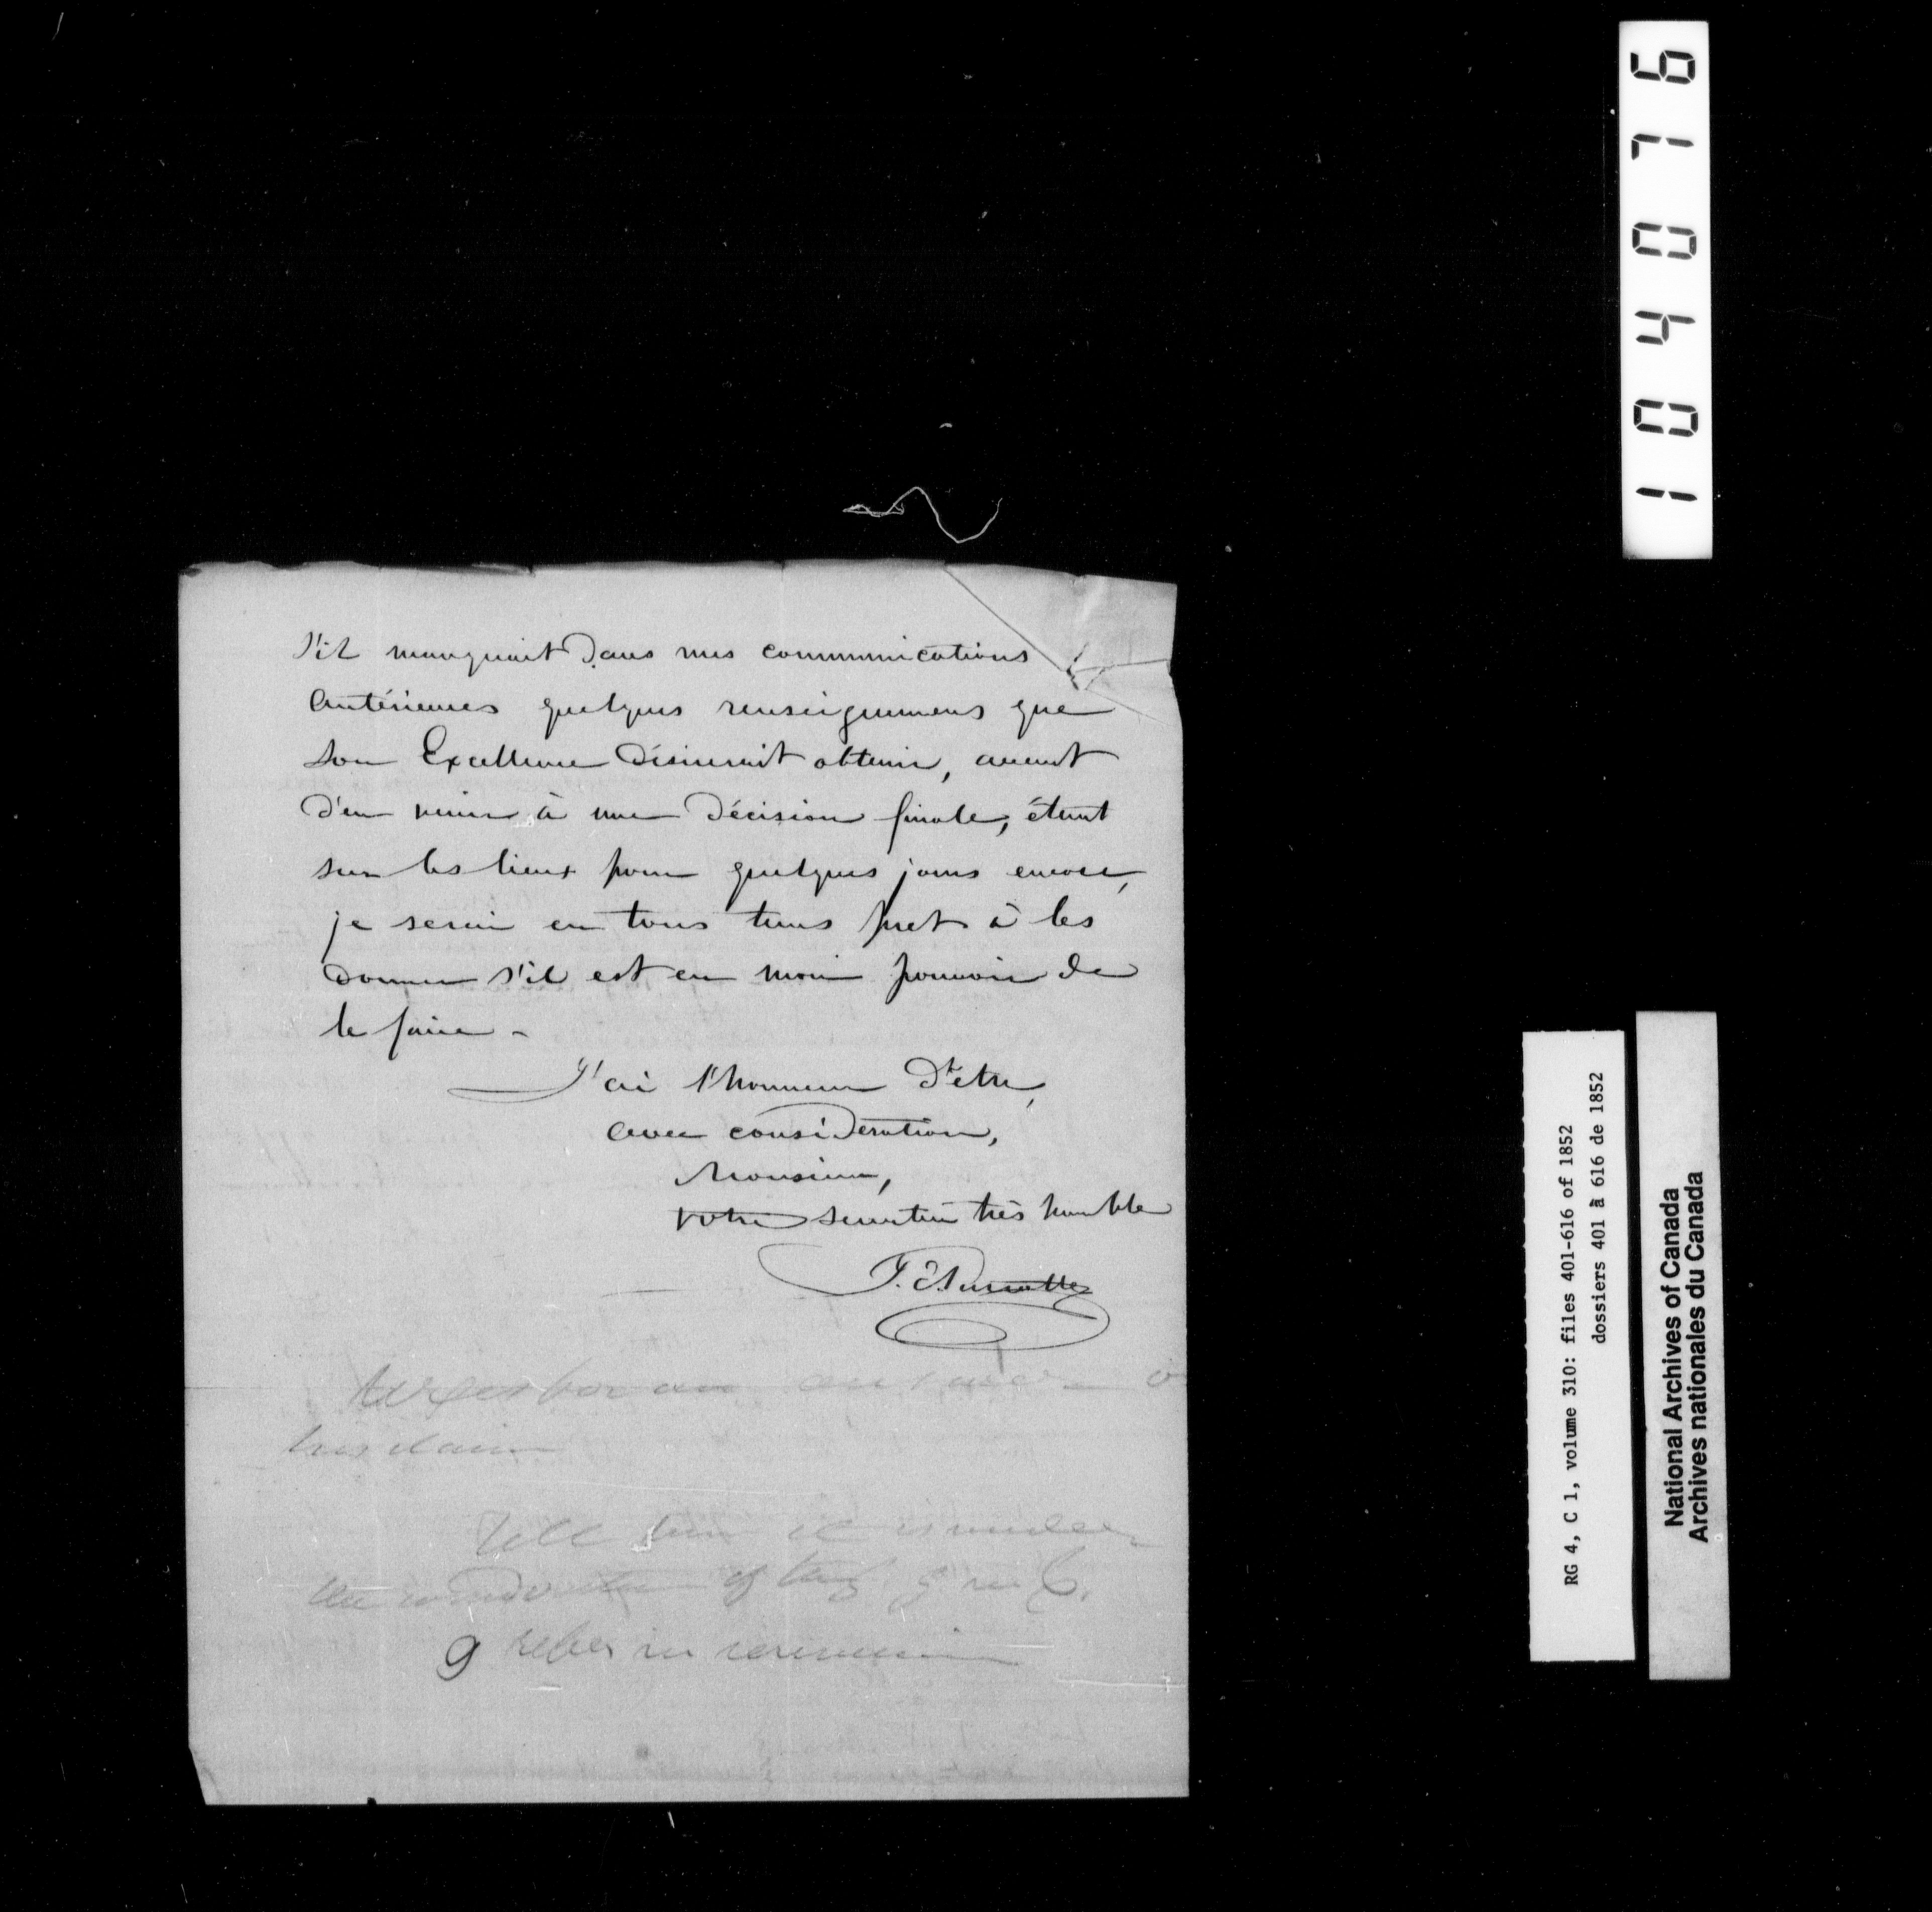 S'il manquait dans mes communications
antérieures quelques renseignemens que
Son Excellence désirerait obtenir, avant
d'en venir à une décision finale, étant
sur les lieux pour quelques jours encore,
je serai en tous tems pret à les
donner s'il est en mon pouvoir de
le faire -
J'ai l'honneur d'etre,
avec considération,
Monsieur,
Votre serviteur très humble
his claim
Tell him it is under
the consideration of the
9
104076
RG 4, C 1, volume 310: files 401-616 of 1852
dossiers 401 à 616 de 1852
National Archives of Canada
Archives nationales du Canada